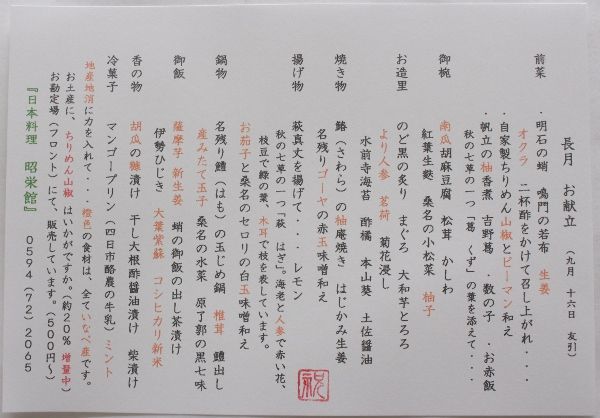 長月　お献立　（九月　十六日　友引）
前菜　・明石の蛸　鳴門の若布　生姜
オクラ　二杯酢をかけて召し上がれ・・・
・自家製ちりめん山椒とピーマン和え
・帆立の柚香煮　吉野葛　・数の子　・お赤飯
秋の七草の一つ「葛　くず」の葉を添えて・・・
御椀　南瓜胡麻豆腐　松茸　かしわ
紅葉生麩　桑名の小松菜　柚子
お造里　のど黒の炙り　まぐろ　大和芋とろろ
より人参　茗荷　菊花浸し
水前寺海苔　酢橘　本山葵　土佐醤油
焼き物　鰆（さわら）の柚庵焼き　はじかみ生姜
名残りゴーヤの赤玉味噌和え
揚げ物　萩真丈を揚げて・・・　レモン
秋の七草の一つ「萩　はぎ」。海老と人参で赤い花、
枝豆で緑の葉、木耳で枝を表しています。
お茄子と桑名のセロリの白玉味噌和え
鍋物　名残り鱧（はも）の玉じめ鍋　椎茸　鱧出し
産みたて玉子　桑名の水菜　原了郭の黒七味
御飯　薩摩芋　新生姜　蛸の御飯の出し茶漬け
伊勢ひじき　大葉紫蘇　コシヒカリ新米
香の物　胡瓜の糠漬け　干し大根酢醤油漬け　柴漬け
冷菓子　マンゴープリン（四日市酪農の牛乳）ミント
地産地消に力を入れて・・・橙色の食材は、全ていなべ産です。
お土産に、ちりめん山椒はいかがですか。（約２０％　増量中）
お勘定場（フロント）にて、販売しています。（５００円～）
『日本料理　昭栄館』　０５９４（７２）２０６５
祝